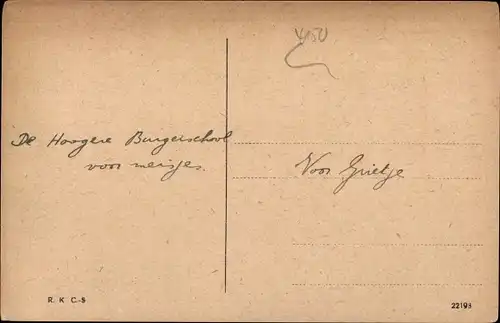 450
De Hoogere Burgerschool
voor meisjes.
Voor Grietje
R. K. C.-S
22193